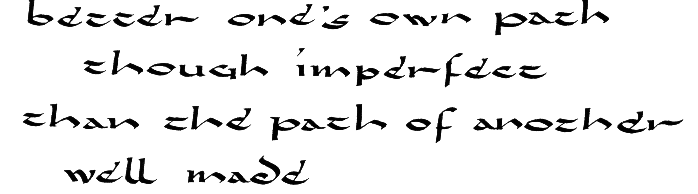 better one's own path
though imperfect
than the path of another
well made